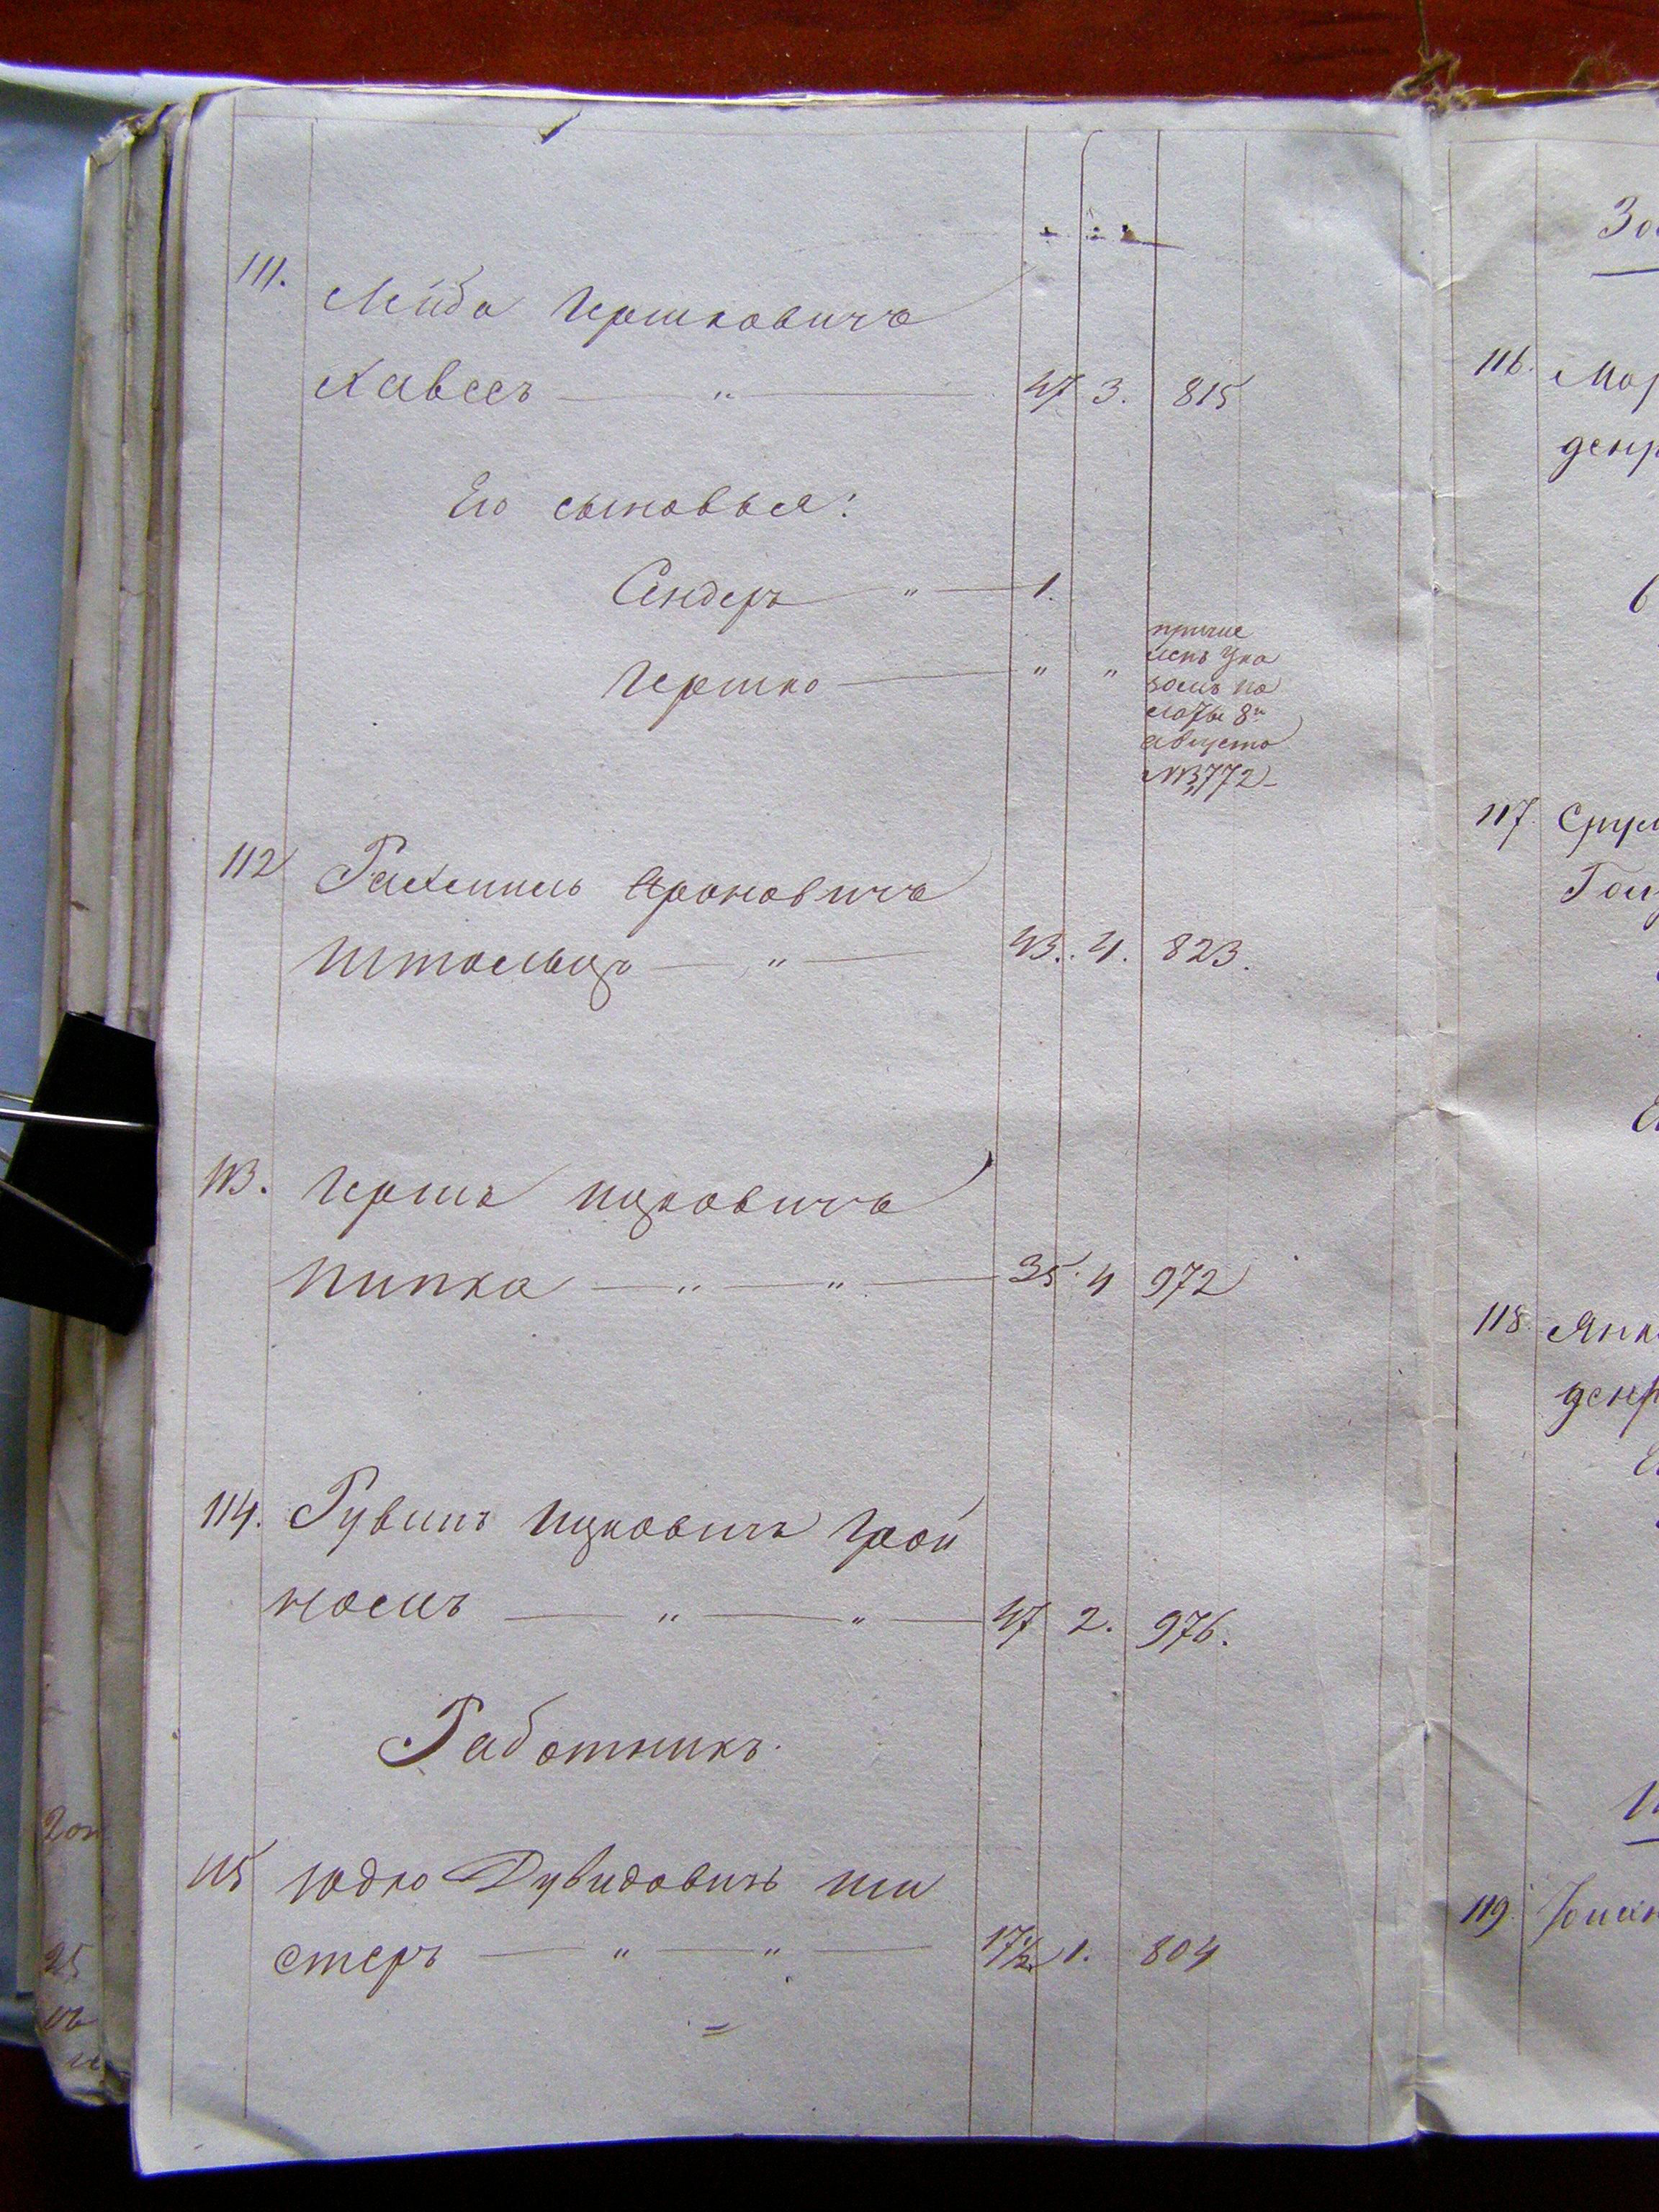 111.
Лейба Гершковичъ
Хавесъ — " — 47 3. 815
Его сыновья:
Сендеръ " — 1.
Гершко — " "
причис
ленъ Ука
зомъ па
латы 8го
августа
№ 3,772
112 Рахмиль Ароновичъ
Штольцъ — " — 43. 4. 823.
113. Гершъ Ицковичъ
Пипка — " — " — 35. 4 972
114. Рувинъ Ицковичъ Грой
носъ — " — " — 47 2. 976.
Работникъ.
115 Юдко Дувидовичъ Ши
стеръ — " — " — 17½ 1. 804
=
116. Мор
денр
117. Срул
Гол
118. Янк
денр
119.